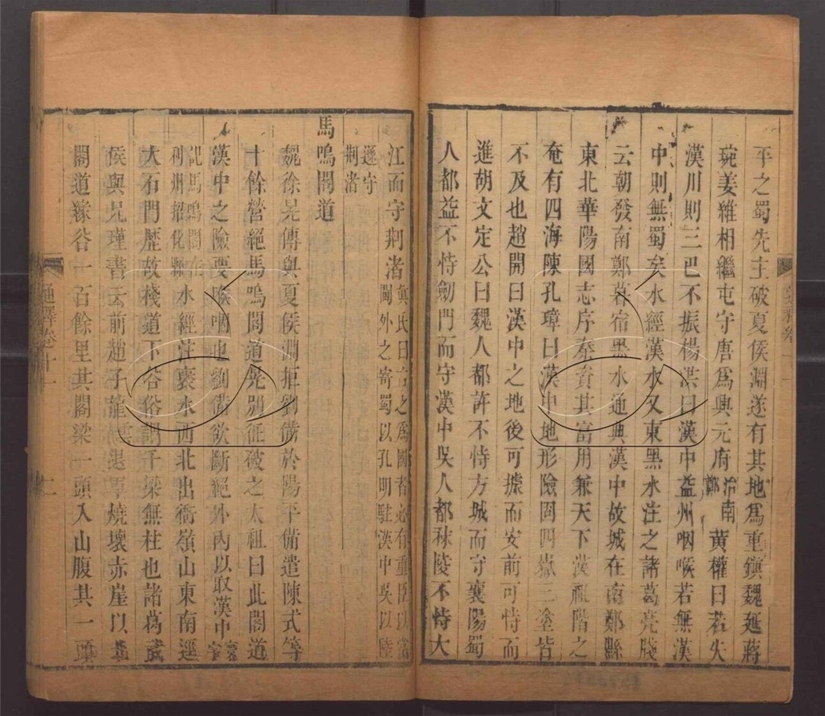 平之蜀先主破夏侯淵遂有其地爲重鎮魏延蔣
琬姜維相繼屯守唐爲興元府治南鄭黃權曰若失
漢川則三巴不振楊洪曰漢中益州咽喉若無漢
中則無蜀矣水經漢水又東黑水注之諸葛亮牋
云朝發南鄭暮宿黑水通典漢中故城在南鄭縣
東北華陽國志序秦資其富用兼天下漢祖階之
奄有四海陳孔璋曰漢中地形險固四嶽三塗皆
不及也趙開曰漢中之地後可據而安前可恃而
進胡文定公曰魏人都許不恃方城而守襄陽蜀
人都益不恃劍門而守漢中吳人都秣陵不恃大
江而守荆渚吳氏曰古之爲國者必有重
閫外之寄蜀以孔明駐漢中吳以陸
遜守
荆渚
馬鳴閣道
魏徐晃傳與夏侯淵拒劉備於陽平備遣陳式等
十餘營絕馬鳴閣道晃別征破之太祖曰此閣道
漢中之險要咽喉也劉備欲斷絕外內以取漢中
記馬鳴閣在
利州昭化縣水經注褒水西北出衙嶺山東南逕
大石門歷故棧道下谷俗謂千梁無柱也諸葛
侯與兄瑾書云前趙子龍退軍燒壞赤崖以
閣道緣谷一百餘里其閣梁一頭入山腹其一頭
通釋卷十一